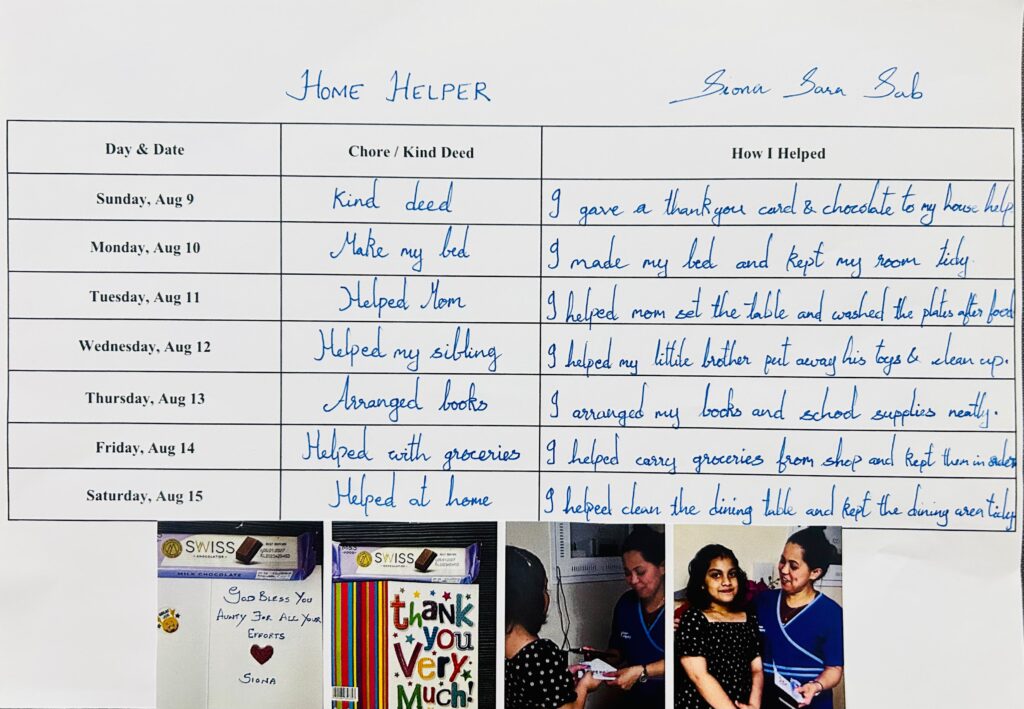 HOME HELPER Siona Sara Sab
Day & Date Chore / Kind Deed How I Helped
Sunday, Aug 9 Kind deed I gave a thank you card & chocolate to my house help
Monday, Aug 10 Make my bed I made my bed and kept my room tidy.
Tuesday, Aug 11 Helped Mom I helped mom set the table and washed the plates after food
Wednesday, Aug 12 Helped my sibling I helped my little brother put away his toys & clean up.
Thursday, Aug 13 Arranged books I arranged my books and school supplies neatly.
Friday, Aug 14 Helped with groceries I helped carry groceries from shop and kept them in order
Saturday, Aug 15 Helped at home I helped clean the dining table and kept the dining area tidy
SWISS
CHOCOLATIER
MILK CHOCOLATE
GOD BLESS YOU
AUNTY FOR ALL YOUR
EFFORTS
SIONA
SWISS
CHOCOLATIER
thank
you
Very
Much!